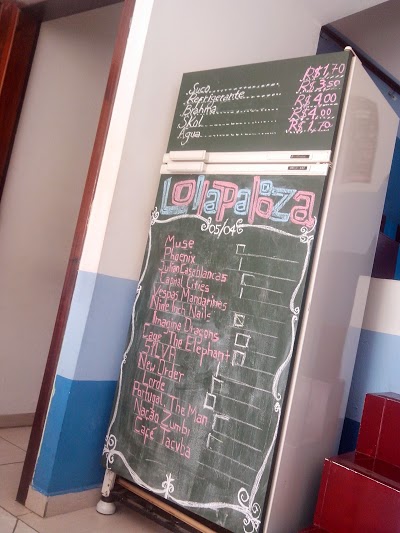 Suco.................... R$1,70
Refrigerante............ R$3,50
Brahma.................. R$4,00
Skol.................... R$4,00
Água.................... R$1,70
Lollapalooza
05/04
Muse
Phoenix
Julian Casablancas
Capital Cities
Vespas Mandarinas
Nine Inch Nails
Imagine Dragons
Cage The Elephant
New Order
Lorde
Portugal. The Man
Nação Zumbi
Café Tacvba